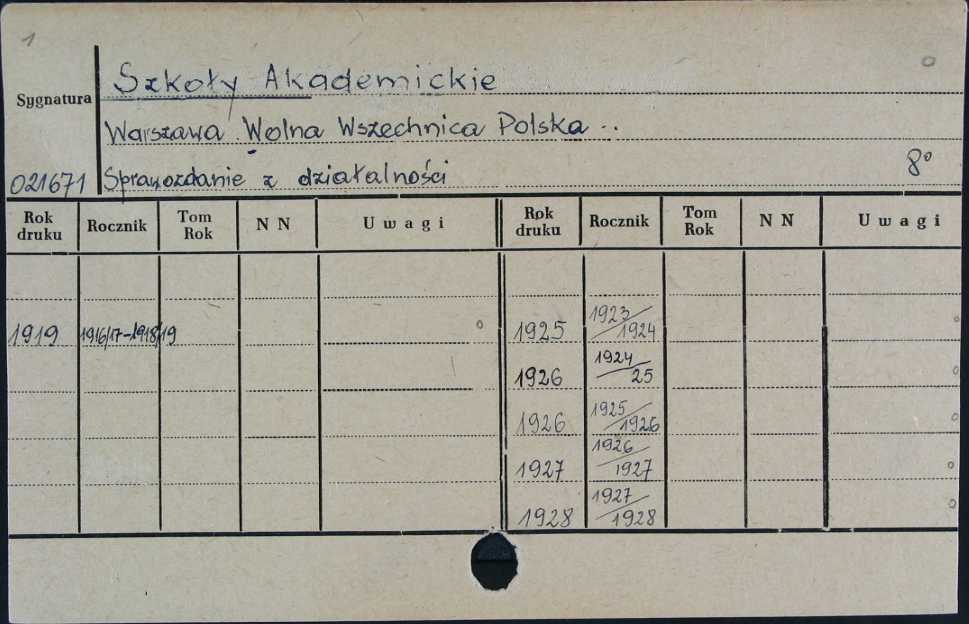 1
Szkoły Akademickie
Sygnatura
Warszawa Wolna Wszechnica Polska ..
8°
021671 Sprawozdanie z działalności
Rok druku Rocznik Tom Rok N N Uwagi Rok druku Rocznik Tom Rok N N Uwagi
1919 1916/17-1918/19 1925 1923/1924
1926 1924/25
1926 1925/1926
1927 1926/1927
1928 1927/1928